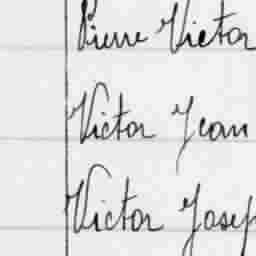 Pierre Victor
Victor Jean
Victor Josep